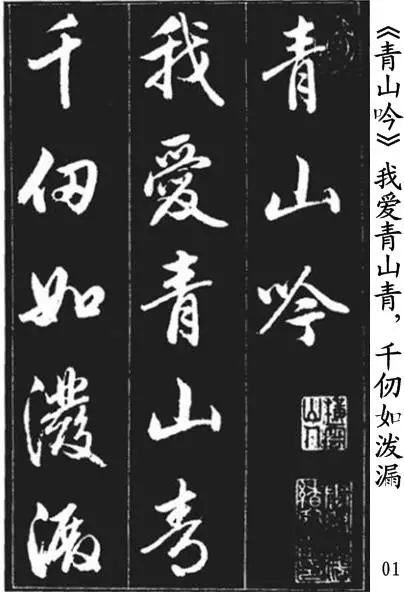 青山吟
我愛青山青
千仞如潑
《青山吟》我爱青山青，千仞如泼漏
01